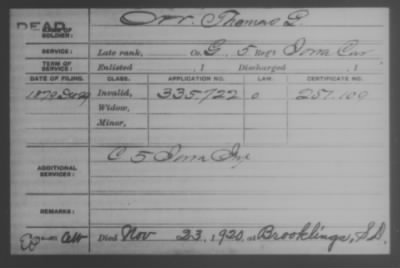 DEAD.
NAME OF SOLDIER: Orr, Thomas G.
SERVICE: Late rank, Co. G, 5 Reg't Iowa Cav
TERM OF SERVICE: Enlisted , 1 Discharged , 1
DATE OF FILING. CLASS. APPLICATION NO. LAW. CERTIFICATE NO.
1879 Dec 29 Invalid, 335.722 257.100
Widow,
Minor,
ADDITIONAL SERVICES: C 5 Iowa Inf
REMARKS:
Died Nov 23, 1920, at Brookings, S.D.